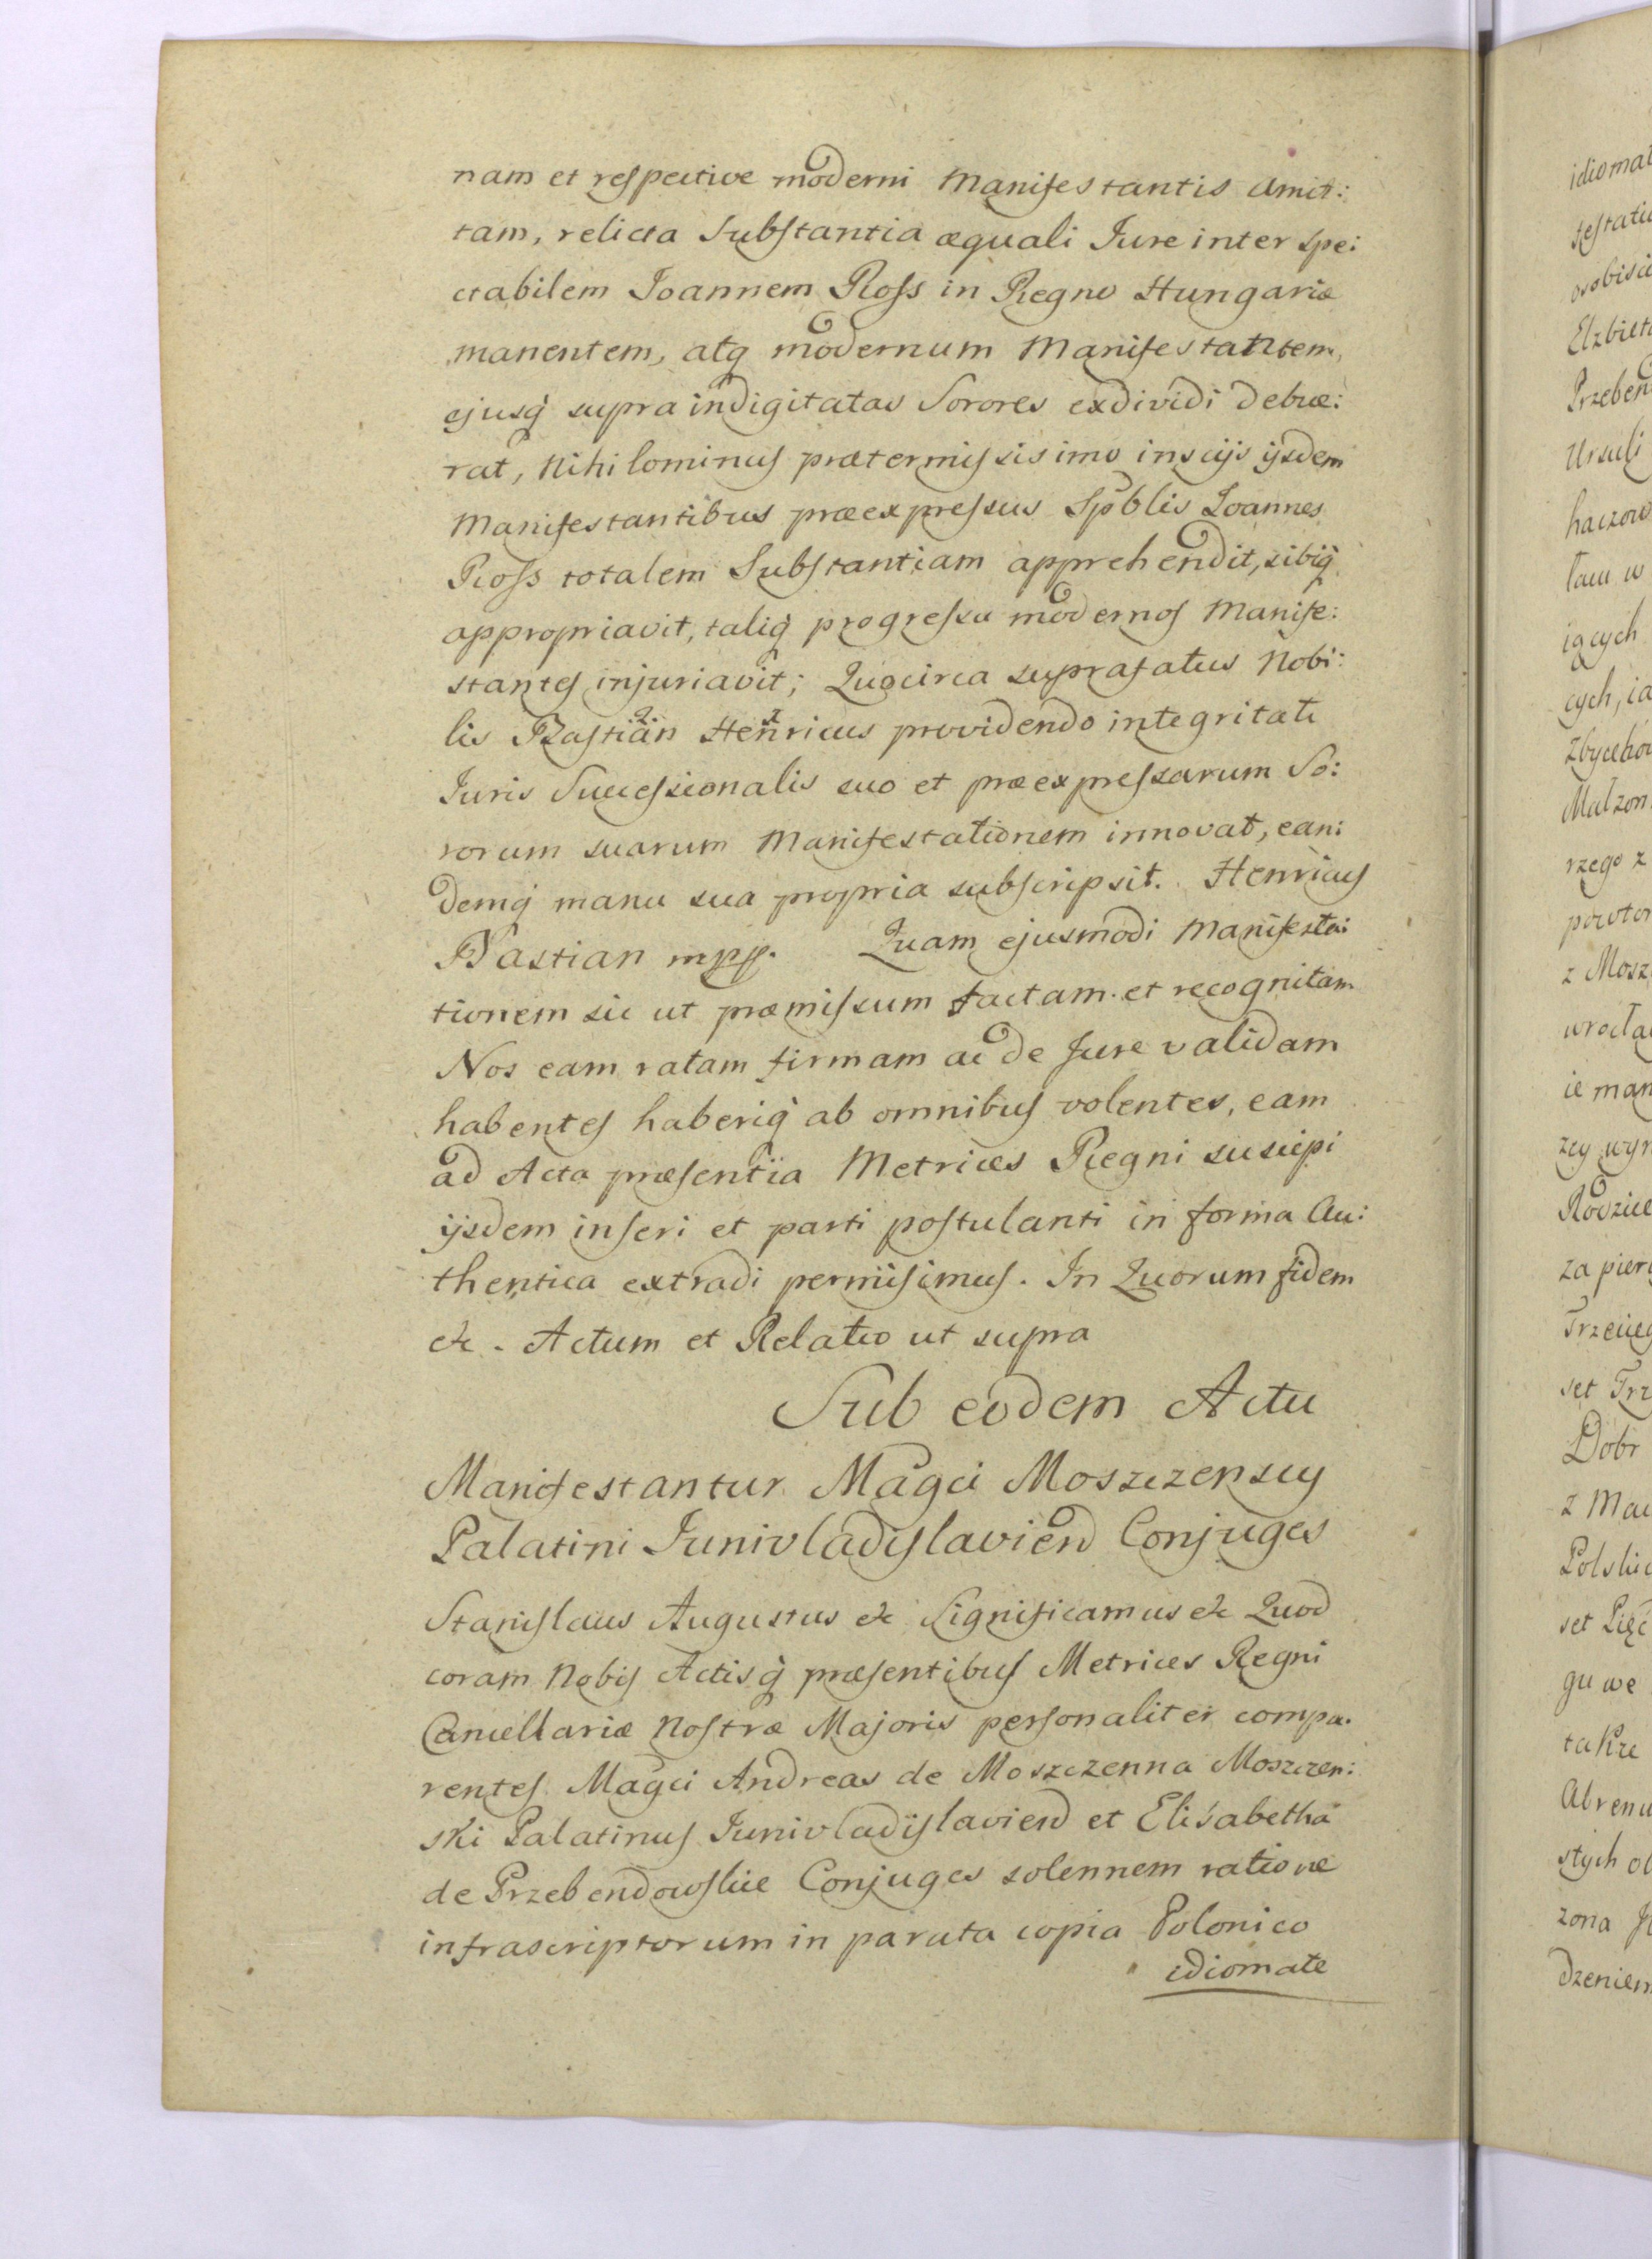 nam et respective moderni Manifestantis Amit:
tam, relicta Substantia æquali Jure inter Spe:
ctabilem Joannem Ross in Regno Hungariæ
manentem, atq modernum Manifestantem,
ejusq supra indigitatas Sorores exdividi debue:
rat, Nihilominus prætermississimo inscijs ijsdem
Manifestantibus præexpressus Spblis Joannes
Ross totalem Substantiam apprehendit, sibiq
appropriavit, taliq progressu modernos Manife:
stantes injuriavit; Quocirca suprafatus Nobi:
lis Bastian Henricus providendo integritati
Juris Successionalis suo et præexpressarum So:
rorum suarum Manifestationem innovat, ean:
demq manu sua propria subscripsit. Henricus
Bastian mpp. Quam ejusmodi Manifesta:
tionem sic ut præmissum factam et recognitam
Nos eam ratam firmam ac de Jure validam
habentes haberiq ab omnibus volentes, eam
ad Acta præsentia Metrices Regni suscipi
ijsdem inseri et parti postulanti in forma Au:
thentica extradi permisimus. In Quorum fidem
etc. Actum et Relatio ut supra
Sub eodem Actu
Manifestantur Magci Moszczenscy
Palatini Junivladislavien Conjuges
Stanislaus Augustus etc Significamus etc Quod
coram Nobis Actisq præsentibus Metrices Regni
Cancellariæ Nostræ Majoris personaliter compa.
rentes Magci Andreas de Moszczenna Moszczen:
ski Palatinus Junivladislavien et Elisabetha
de Przebendowskie Conjuges solennem ratione
infrascriptorum in parata copia Polonico
idiomate